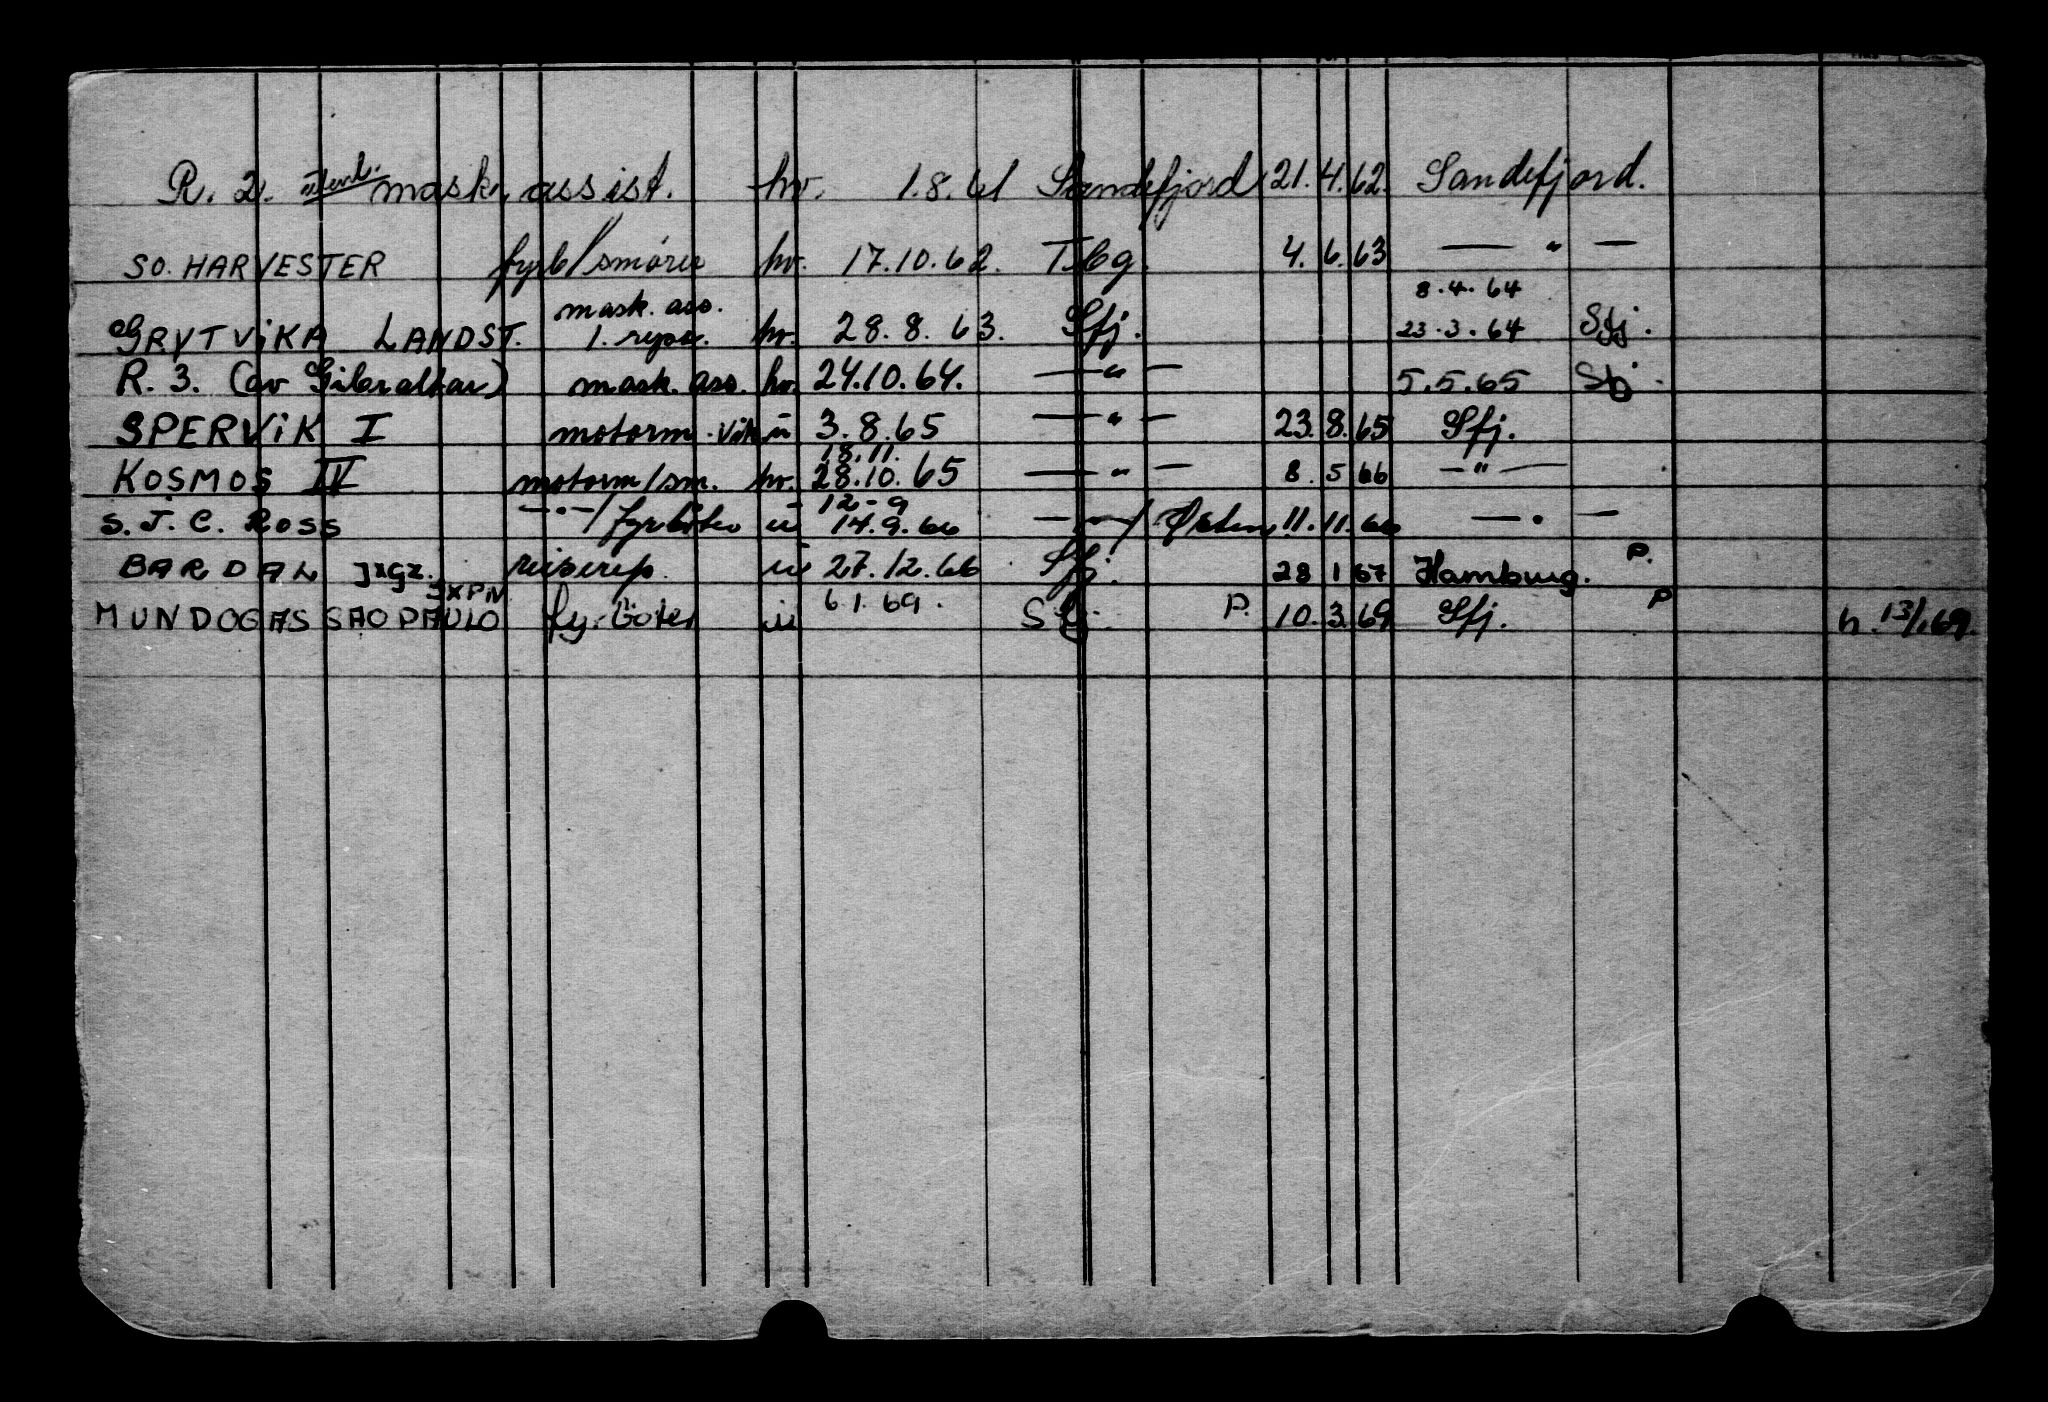 R. 2. mask. assist. hv. 1.8.61 Sandefjord 21.4.62. Sandefjord.
SO. HARVESTER fyrb/smører hv. 17.10.62. T.bg. 4.6.63 — " —
mask. ass. 8.4.64
GRYTVIKA LANDST. 1. rep. hv. 28.8.63. Sfj. 23.3.64 Sfj.
R. 3. (av Gibraltar) mask. ass. hv. 24.10.64. — " — 5.5.65 Sfj.
SPERVIK I motorm. u 3.8.65 — " — 23.8.65 Sfj.
18.11.
KOSMOS IV motorm/sm. hv. 28.10.65 — " — 8.5 66 — " —
12-9
S. J. C. ROSS — " —/fyrbøter u 14.9.66 — " —/ Østen 11.11.66 — " —
BARDAL JXGZ. reiserep. u 27.12.66 Sfj. 28 1 67 Hamburg. P.
JXPN 6.1.69.
MUNDOGAS SAO PAULO fyrbøter u Sfj. P. 10.3.69 Sfj. P h. 13/1.69.